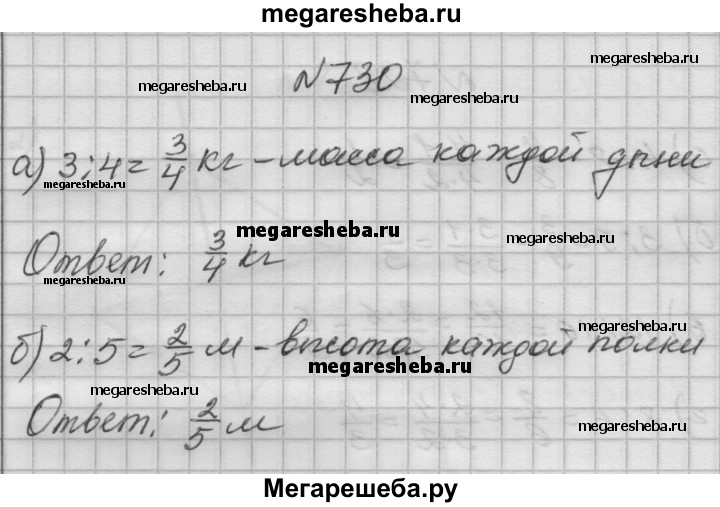 megaresheba.ru
megaresheba.ru
megaresheba.ru
№730
megaresheba.ru
а) 3:4=3/4 кг – масса каждой дыни
megaresheba.ru
megaresheba.ru
megaresheba.ru
Ответ: 3/4 кг
megaresheba.ru
megaresheba.ru
б) 2:5=2/5 м – высота каждой полки
megaresheba.ru
megaresheba.ru
megaresheba.ru
Ответ: 2/5 м
megaresheba.ru
Мегарешеба.ру